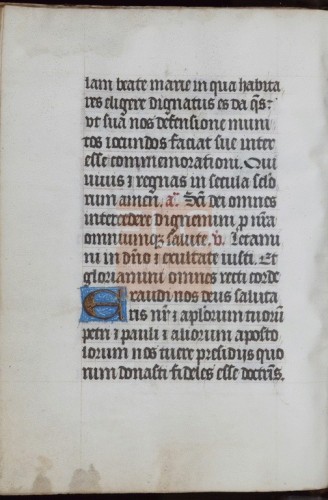 lam beate marie in qua habita
res eligere dignatus es da q̃s:
vt suã nos defensione muni
tos iocundos faciat sue inter
esse commemorationi. Qui
viuis ⁊ regnas in secula seclo
rum amen. a᷎. Scĩ dei omnes
intercedere dignemini p nr̃a
omniumqꝫ salute. v. Letami
ni in dño ⁊ exultate iusti. Et
gloriamini omnes recti corde
Exaudi nos deus saluta
ris nr̃ ⁊ aplorum tuorũ
petri ⁊ pauli ⁊ aliorum aposto
lorum nos tuere presidijs quo
rum donasti fideles esse doctrĩs.